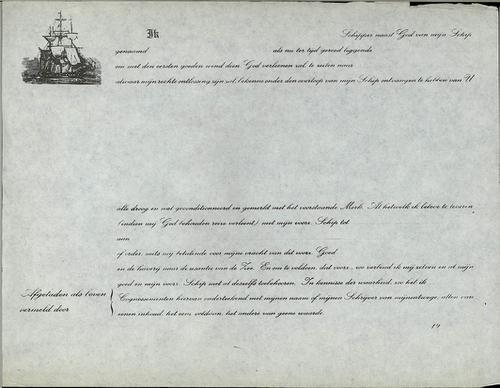 Ik Schipper naast God van mijn Schip
genaamd als nu ter tijd gereed liggende
om met den eersten goeden wind dien God verleenen zal te zeilen naar
alwaar mijn rechte ontlossing zijn zal, bekenne onder den overloop van mijn Schip ontvangen te hebben van U
alle droog en wel geconditionneerd en gemerkt met het voorstaande Merk. Al hetwelk ik beloove te leveren
(indien mij God behouden reize verleent) met mijn voorz. Schip tot
aan
of order, mits mij betalende voor mijne vracht van dit voorz. Goed
en de haverij naar de usantie van de Zee. En om te voldoen, dat voorz., zoo verbind ik mij zelven en al mijn
goed en mijn voorz. Schip met al deszelfs toebehooren. In kennisse der waarheid, zoo heb ik
Cognossementen hiervan onderteekend met mijnen naam of mijnen Schrijver van mijnentwege, allen van
eenen inhoud, het een voldaan, het andere van geene waarde.
Afgeladen als boven
vermeld door
19